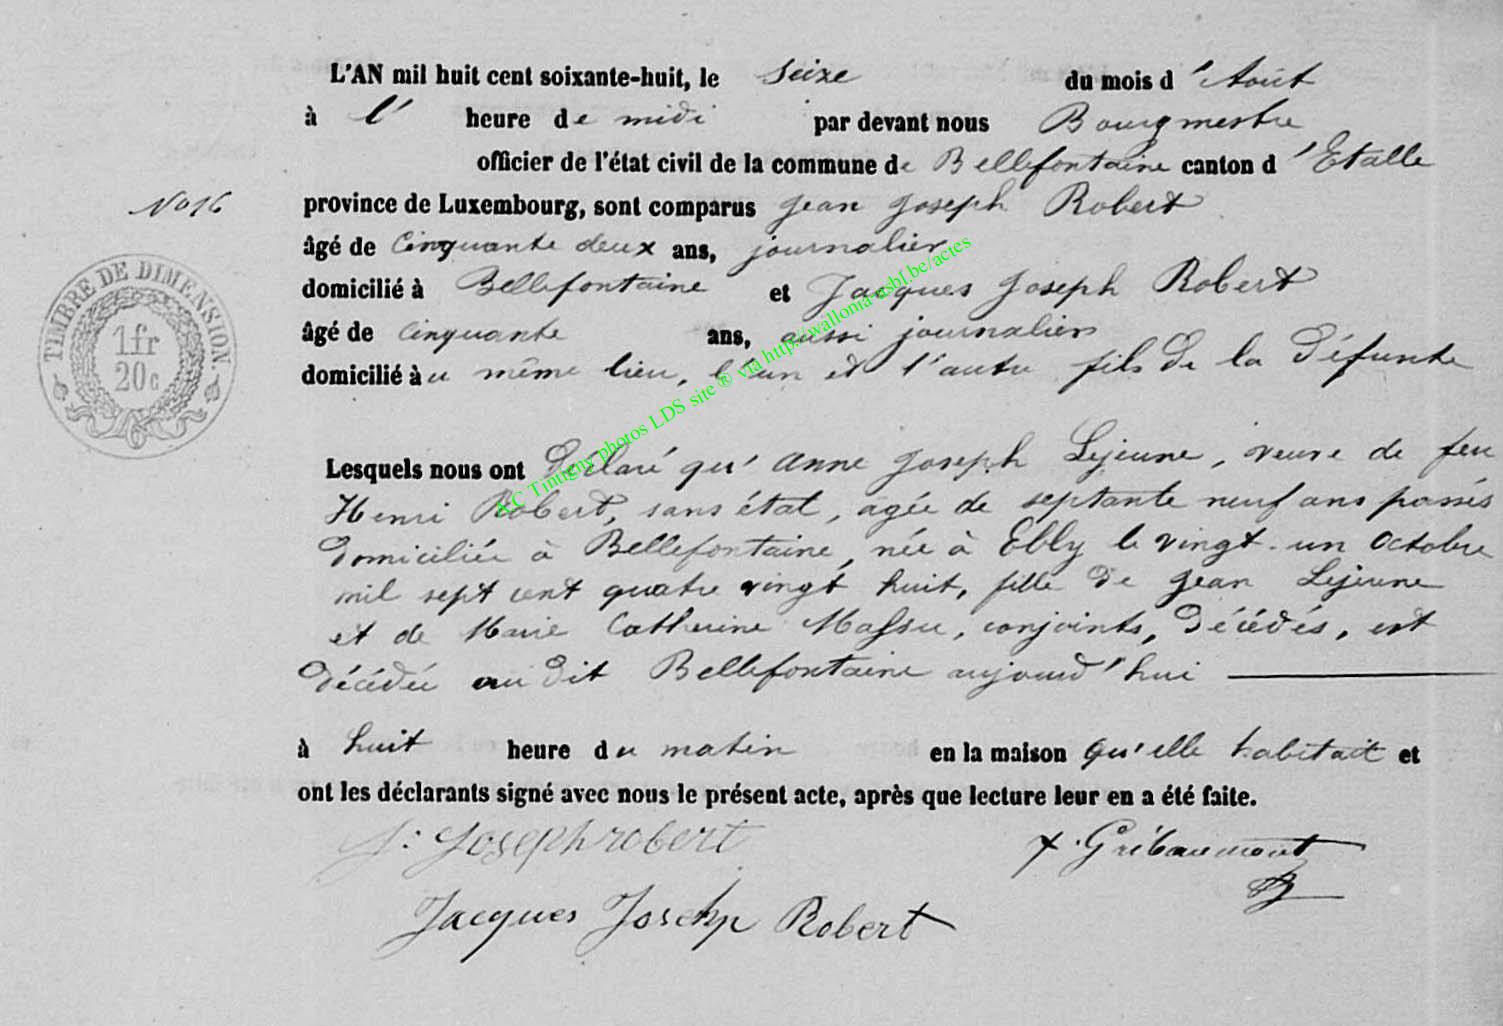 L'AN mil huit cent soixante-huit, le seize du mois d'Août
à l' heure de midi par devant nous Bourgmestre
officier de l'état civil de la commune de Bellefontaine canton d'Etalle
No 16
province de Luxembourg, sont comparus Jean Joseph Robert
âgé de cinquante deux ans, journalier
domicilié à Bellefontaine et Jacques Joseph Robert
âgé de cinquante ans, aussi journalier
domicilié au même lieu, l'un et l'autre fils de la défunte
TIMBRE DE DIMENSION.
1 fr
20 c
Lesquels nous ont déclaré qu'Anne Joseph Lejeune, veuve de feu
Henri Robert, sans état, agée de septante neuf ans passés
domiciliée à Bellefontaine, née à Ebly le vingt-un Octobre
mil sept cent quatre vingt huit, fille de Jean Lejeune
et de Marie Catherine Massu, conjoints, décédés, est
décédée au dit Bellefontaine aujourd'hui
à huit heure du matin en la maison qu'elle habitait et
ont les déclarants signé avec nous le présent acte, après que lecture leur en a été faite.
J: Joseph robert
Gribaumont
Jacques Joseph Robert
KC Tintigny photos LDS site ® via http://wallonia-asbf.be/actes